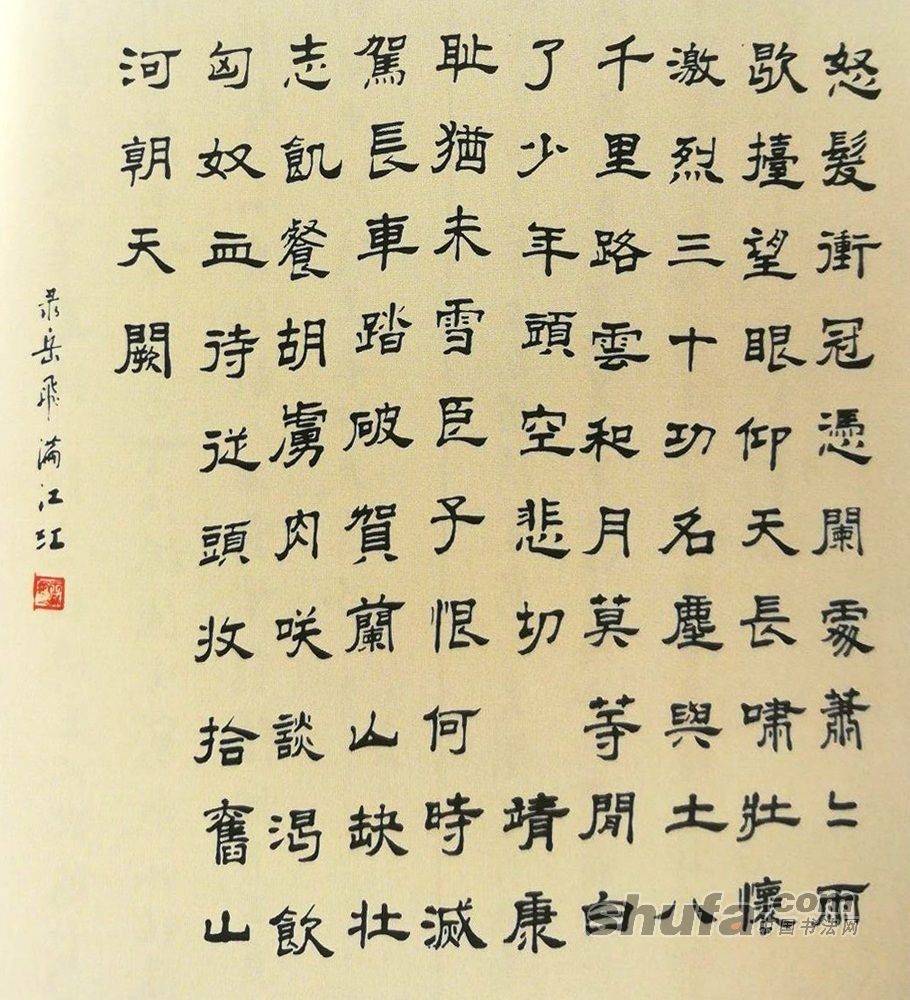 怒髮衝冠憑闌處蕭〻雨
歇擡望眼仰天長嘯壯懷
激烈三十功名塵與土八
千里路雲和月莫等閒白
了少年頭空悲切 靖康
耻猶未雪臣子恨何時滅
駕長車踏破賀蘭山缺壯
志飢餐胡虜肉咲談渴飲
匈奴血待從頭收拾舊山
河朝天闕
录岳飛滿江江
shufa.com
中国书法网